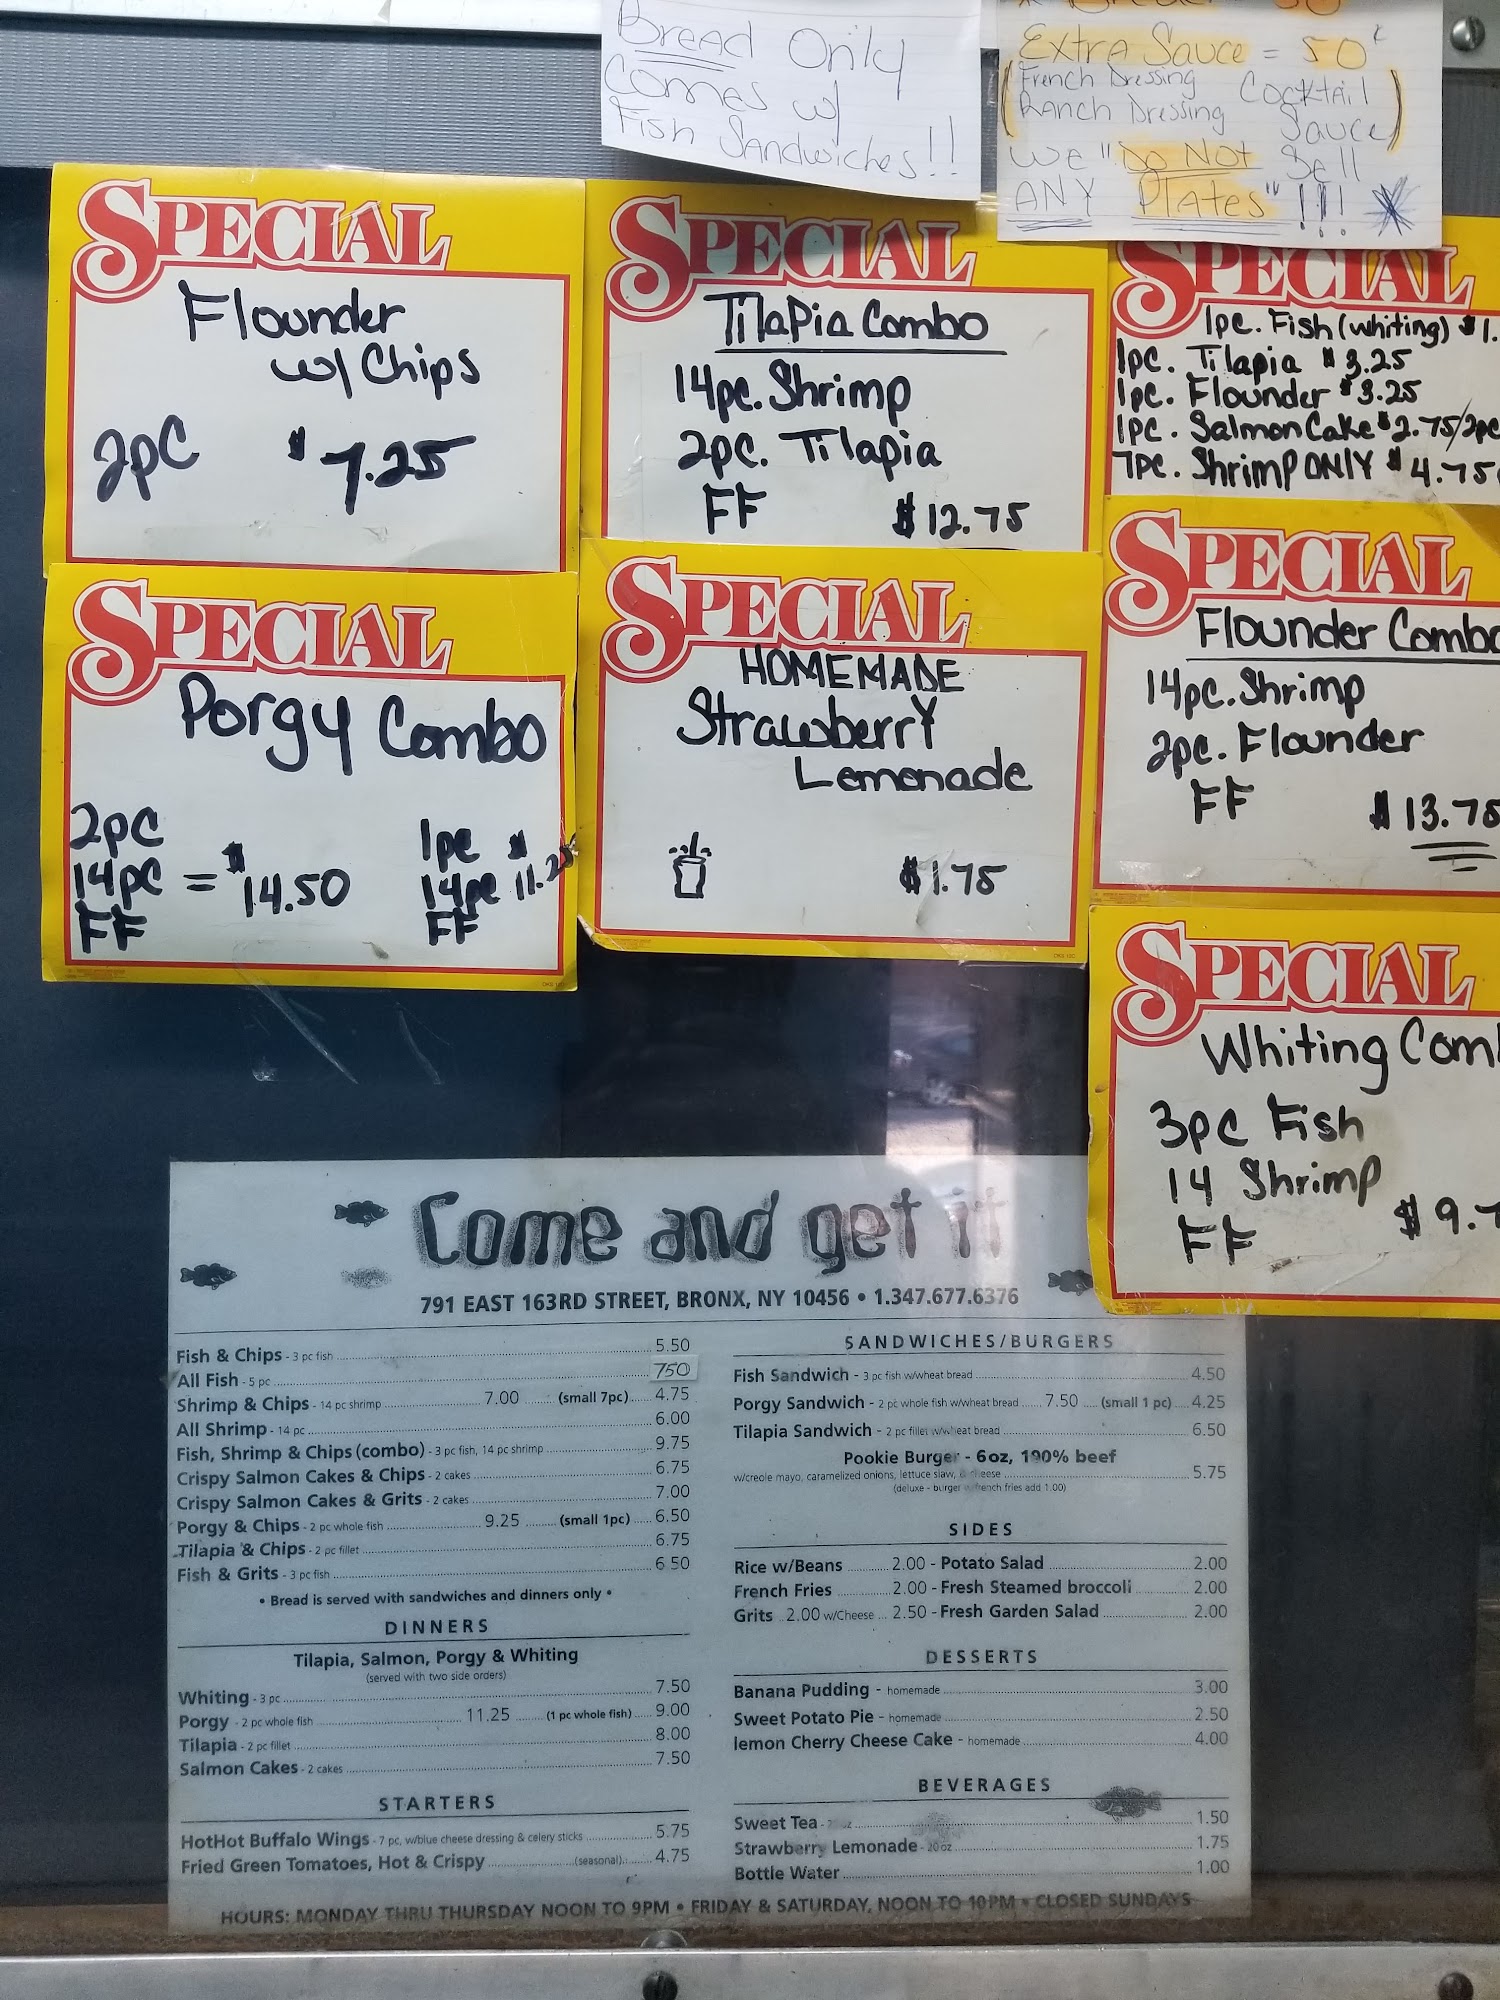 Bread Only
Comes w/
Fish Sandwiches!!
Extra Sauce = 50¢
(French Dressing Cocktail
Ranch Dressing Sauce)
We "Do Not" Sell
ANY Plates" !!!
SPECIAL
Flounder
w/ Chips
2pc $7.25
SPECIAL
TilaPia Combo
14pc. Shrimp
2pc. Tilapia
FF $12.75
SPECIAL
1pc. Fish (whiting) $1.
1pc. Tilapia $3.25
1pc. Flounder $3.25
1pc. Salmon Cake $2.75/2pc
7pc. Shrimp ONLY $4.75
SPECIAL
Porgy Combo
2pc
14pc = $14.50
FF
1pc $
14pc 11.25
FF
SPECIAL
HOMEMADE
Strawberry
Lemonade
$1.75
SPECIAL
Flounder Combo
14pc. Shrimp
2pc. Flounder
FF $13.75
SPECIAL
Whiting Com
3pc Fish
14 Shrimp
FF $9.7
Come and get it
791 EAST 163RD STREET, BRONX, NY 10456 • 1.347.677.6376
Fish & Chips - 3 pc fish 5.50
All Fish - 5 pc 750
Shrimp & Chips - 14 pc shrimp 7.00 (small 7pc) 4.75
All Shrimp - 14 pc 6.00
Fish, Shrimp & Chips (combo) - 3 pc fish, 14 pc shrimp 9.75
Crispy Salmon Cakes & Chips - 2 cakes 6.75
Crispy Salmon Cakes & Grits - 2 cakes 7.00
Porgy & Chips - 2 pc whole fish 9.25 (small 1pc) 6.50
Tilapia & Chips - 2 pc fillet 6.75
Fish & Grits - 3 pc fish 6.50
• Bread is served with sandwiches and dinners only •
DINNERS
Tilapia, Salmon, Porgy & Whiting
(served with two side orders)
Whiting - 3 pc 7.50
Porgy - 2 pc whole fish 11.25 (1 pc whole fish) 9.00
Tilapia - 2 pc fillet 8.00
Salmon Cakes - 2 cakes 7.50
STARTERS
HotHot Buffalo Wings - 7 pc, w/blue cheese dressing & celery sticks 5.75
Fried Green Tomatoes, Hot & Crispy (seasonal) 4.75
SANDWICHES/BURGERS
Fish Sandwich - 3 pc fish w/wheat bread 4.50
Porgy Sandwich - 2 pc whole fish w/wheat bread 7.50 (small 1 pc) 4.25
Tilapia Sandwich - 2 pc fillet w/wheat bread 6.50
Pookie Burger - 6oz, 100% beef
w/creole mayo, caramelized onions, lettuce slaw, & cheese 5.75
(deluxe - burger w/french fries add 1.00)
SIDES
Rice w/Beans 2.00 - Potato Salad 2.00
French Fries 2.00 - Fresh Steamed broccoli 2.00
Grits 2.00 w/Cheese 2.50 - Fresh Garden Salad 2.00
DESSERTS
Banana Pudding - homemade 3.00
Sweet Potato Pie - homemade 2.50
lemon Cherry Cheese Cake - homemade 4.00
BEVERAGES
Sweet Tea - oz 1.50
Strawberry Lemonade - 20 oz 1.75
Bottle Water 1.00
HOURS: MONDAY THRU THURSDAY NOON TO 9PM • FRIDAY & SATURDAY, NOON TO 10PM • CLOSED SUNDAYS